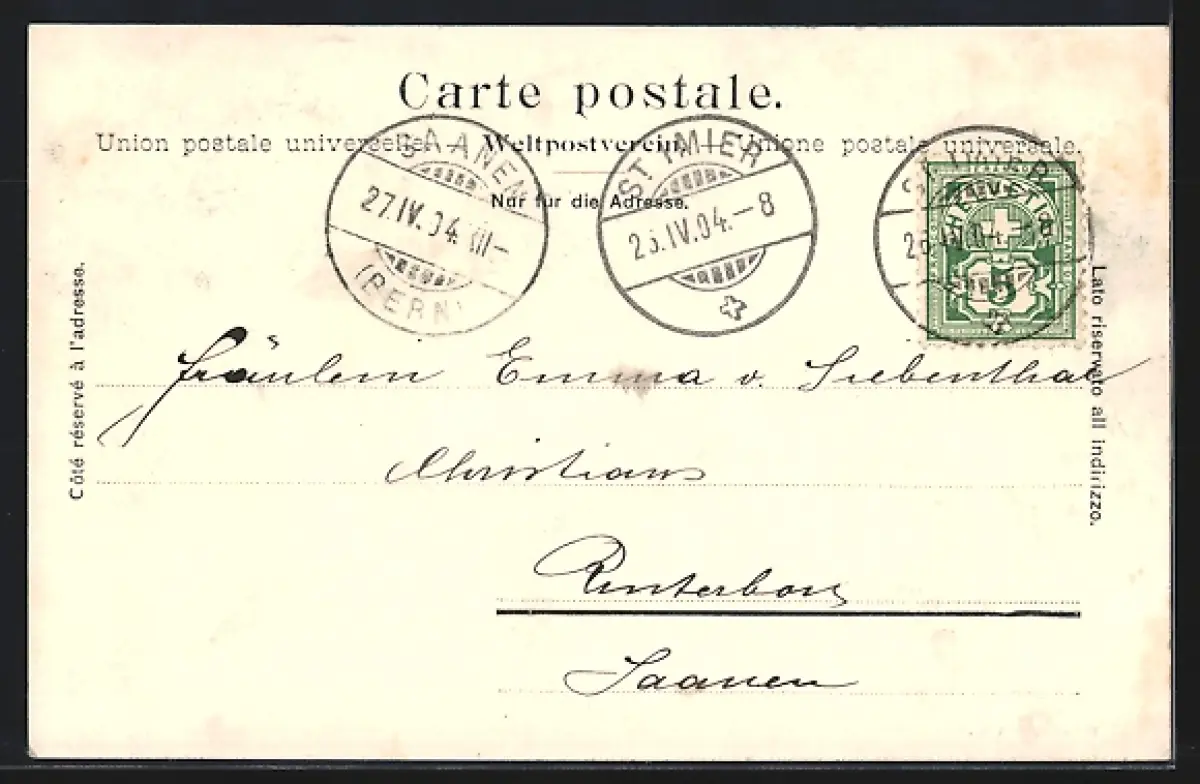 Carte postale.
Union postale universelle. — Weltpostverein. — Unione postale universale.
Nur für die Adresse.
SAANEN
27.IV.04.XII–
(BERN)
ST IMIER
26.IV.04.–8
ST IMIER
HELVETIA
5
Côté réservé à l'adresse.
Lato riservato all indirizzo.
Fräulein Emma v. Siebenthal
Christians
Saanen